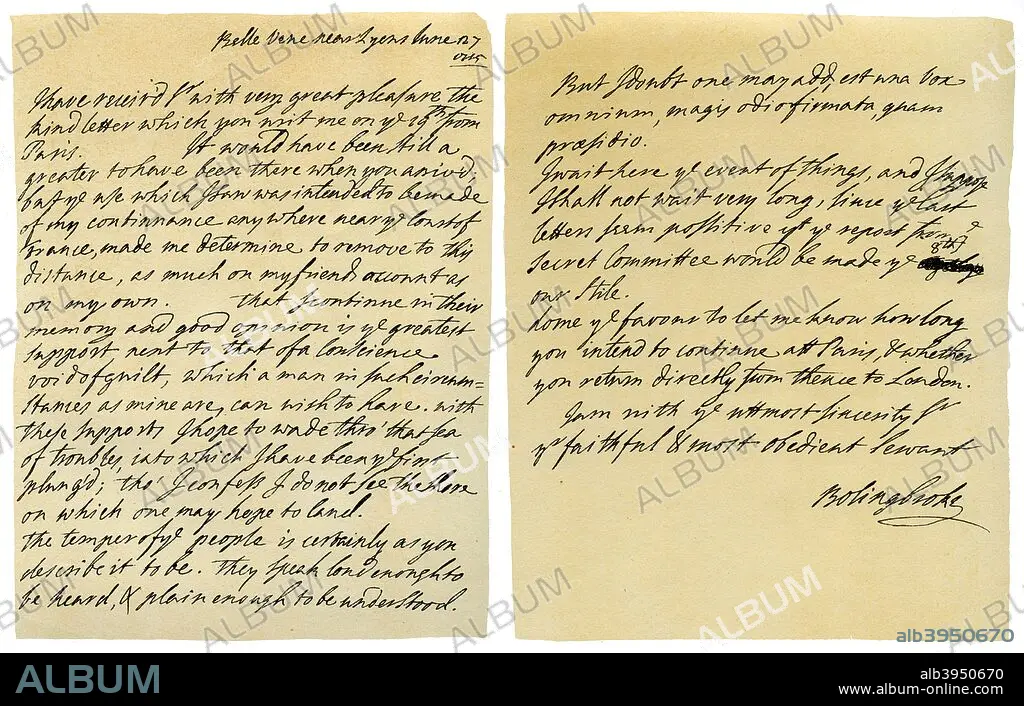 Belle Vene near Lyons June 27
1715
I have receiv'd Sr with very great pleasure the
kind letter which you writ me on ye 19th from
Paris. It would have been still a
greater to have been there when you arriv'd;
but ye use which I saw was intended to be made
of my continuance any where near ye Coast of
France, made me determine to remove to this
distance, as much on my friends account as
on my own. that I continue in their
memory and good opinion is ye greatest
support next to that of a Conscience
void of guilt, which a man in such circum=
stances as mine are, can wish to have. with
these supports I hope to wade thro' that sea
of troubles, into which I have been ye first
plung'd; tho I confess I do not see the shore
on which one may hope to land.
the temper of ye people is certainly as you
describe it to be. They speak loud enough to
be heard, & plain enough to be understood.
But I doubt one may add, est una vox
omnium, magis odio firmata, quam
præsidio.
I wait here ye event of things, and I suppose
I shall not wait very long, since ye last
letters seem possitive yt ye report from ye
8th
Secret Committee would be made ye
our stile.
done ye favour to let me know how long
you intend to continue att Paris, & whether
you return directly from thence to London.
I am with ye uttmost sincerity Sr
yr faithful & most obedient servant
Bolingbroke
alb3950670
ALBUM
alb3950670
www.album-online.com